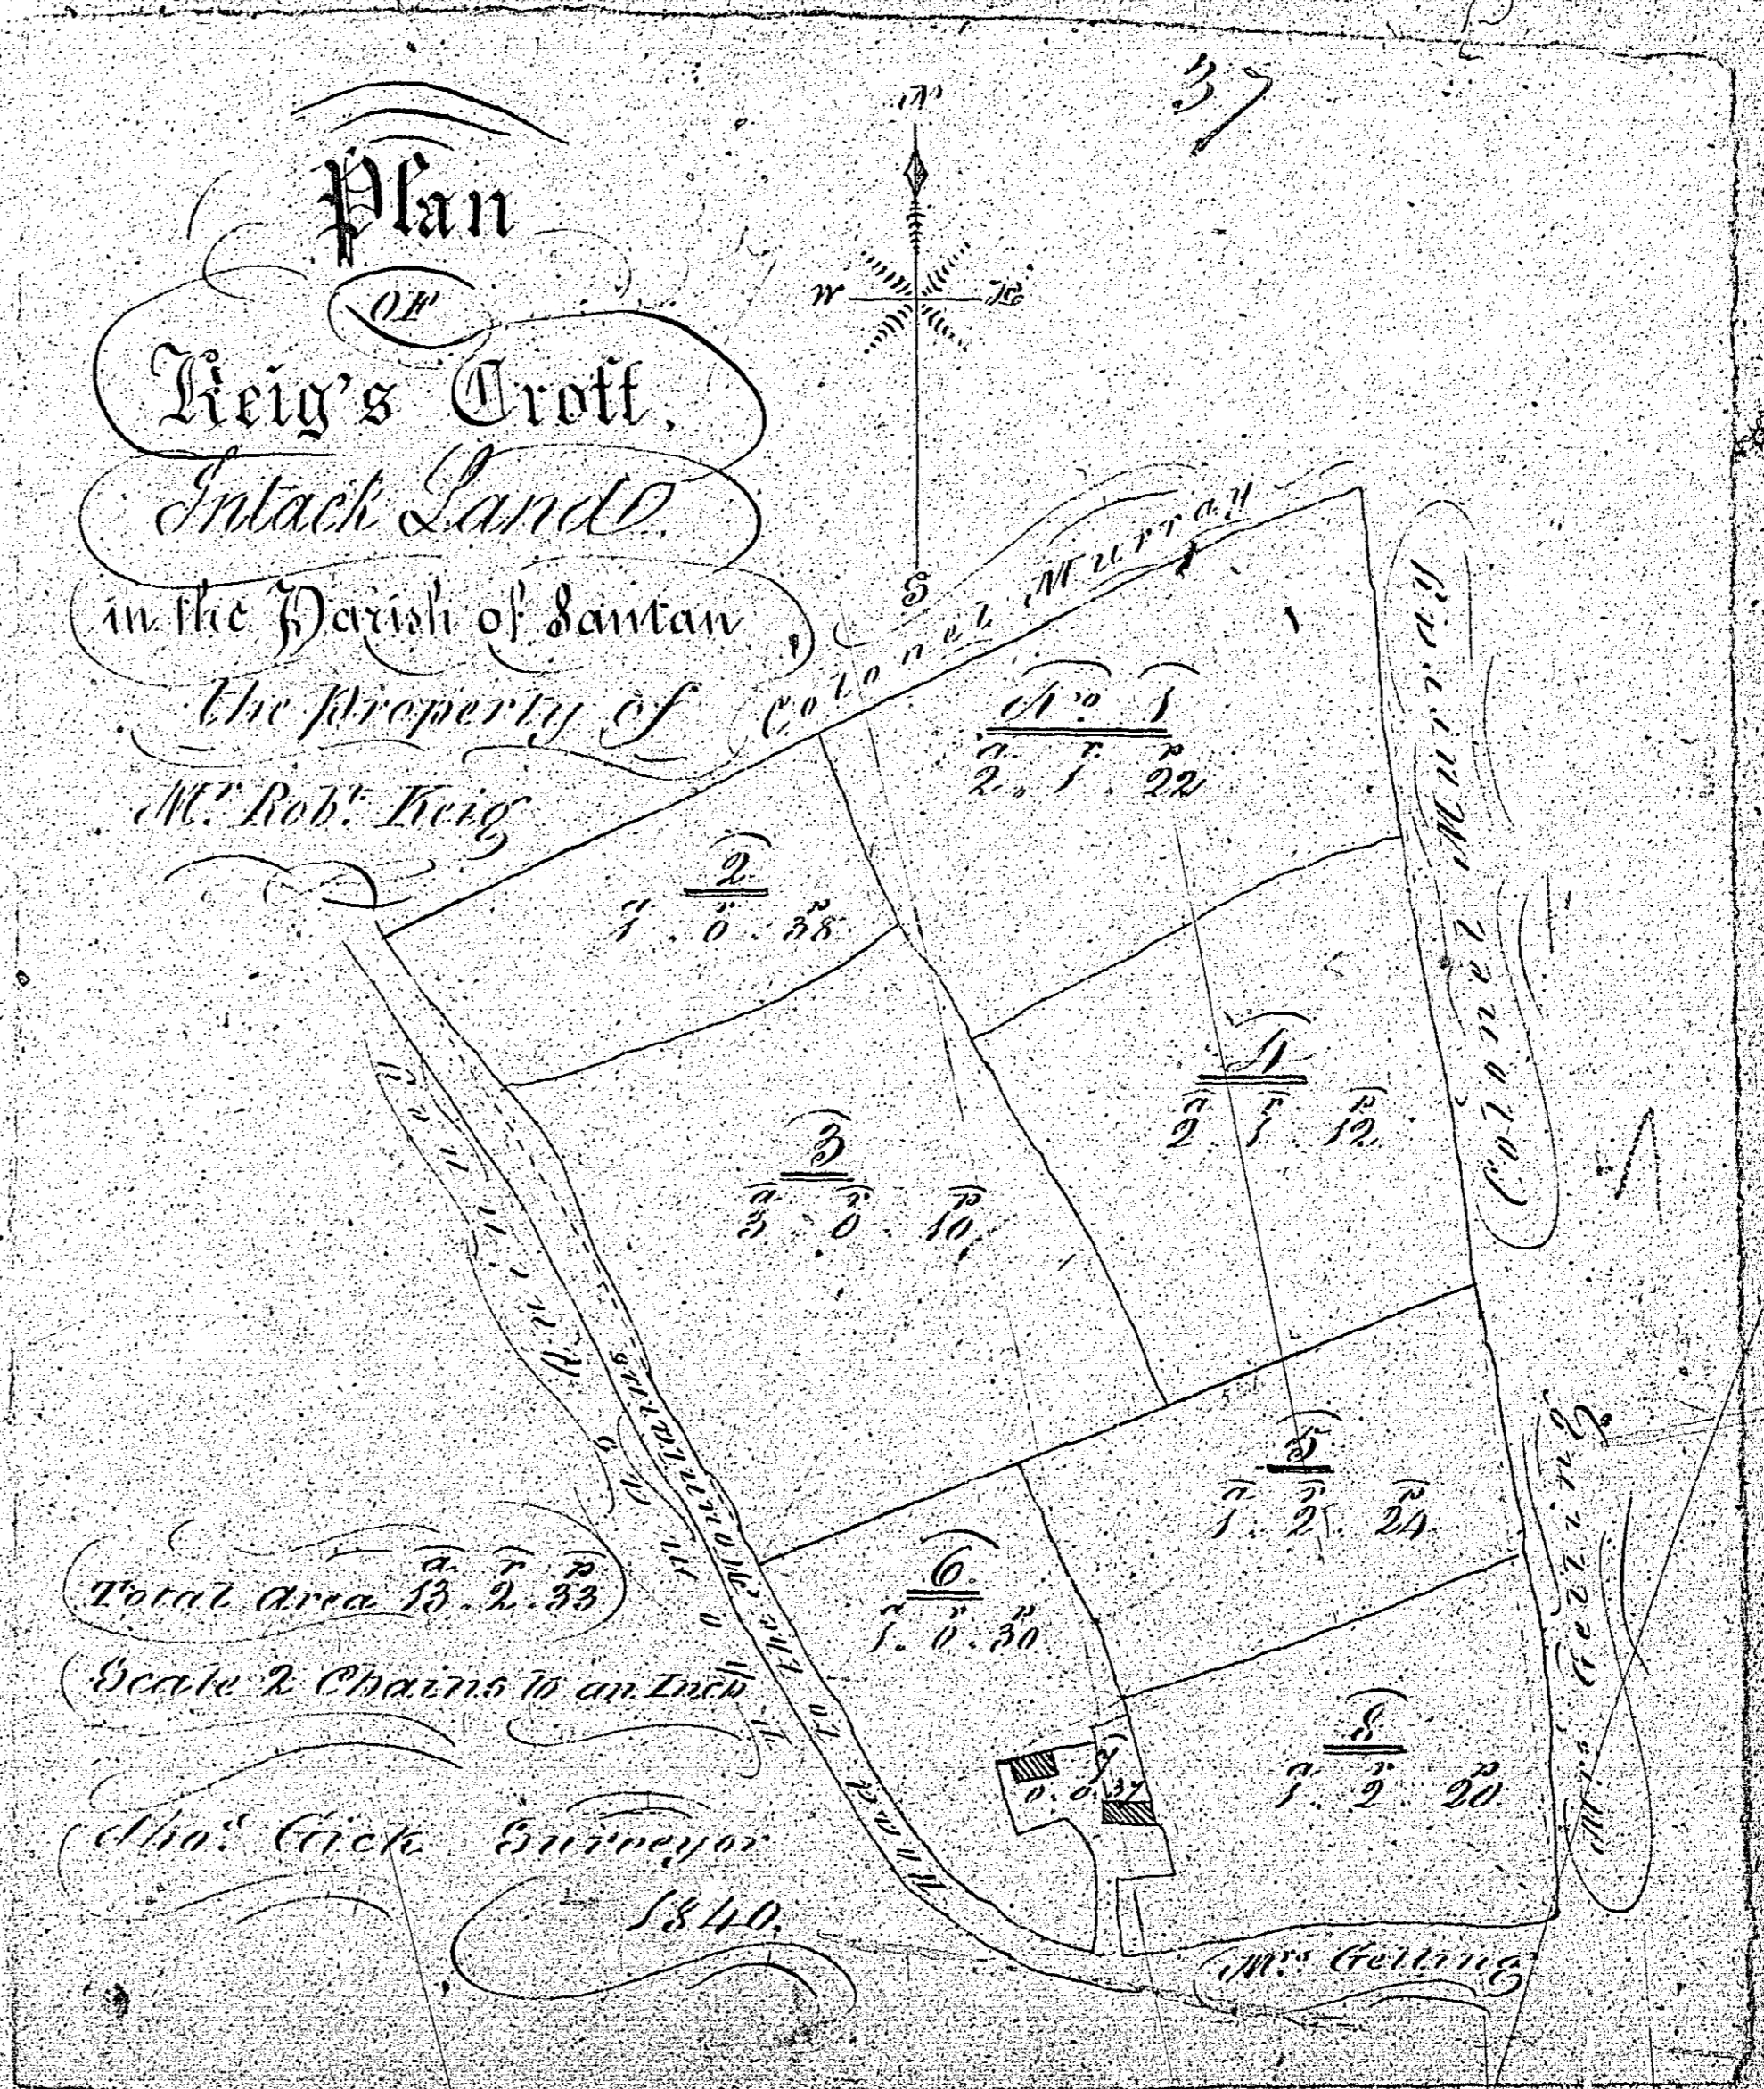 37
Plan
OF
Keig's Croft,
Intack Land
in the Parish of Santan
the Property of
Mr. Robt. Keig
N
W E
S
Colonel Murray
Colonel Murray
No 1
a r p
2. 1. 22
2
a r p
1. 0. 38
3
a r p
3. 0. 10
4
a r p
2. 1. 12
5
a r p
1. 2. 24
6
a r p
1. 0. 30
7
0. 0. 37
8
a r p
1. 2. 20
Road to the Mountains
Mrs Gelling
Mrs Gelling
a r p
Total Area 13. 2. 33
Scale 2 Chains to an Inch
Thos. Crick Surveyor
1840.